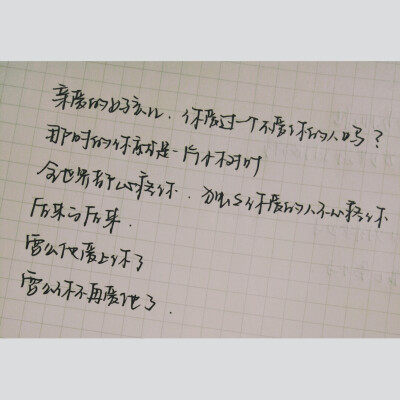 亲爱的好，你爱过一个不爱你的人吗？
那时的你就是一片小树叶
全世界都心疼你．你爱的人不心疼你
后来的后来．
要么他爱上你了
要么你不再爱他了．